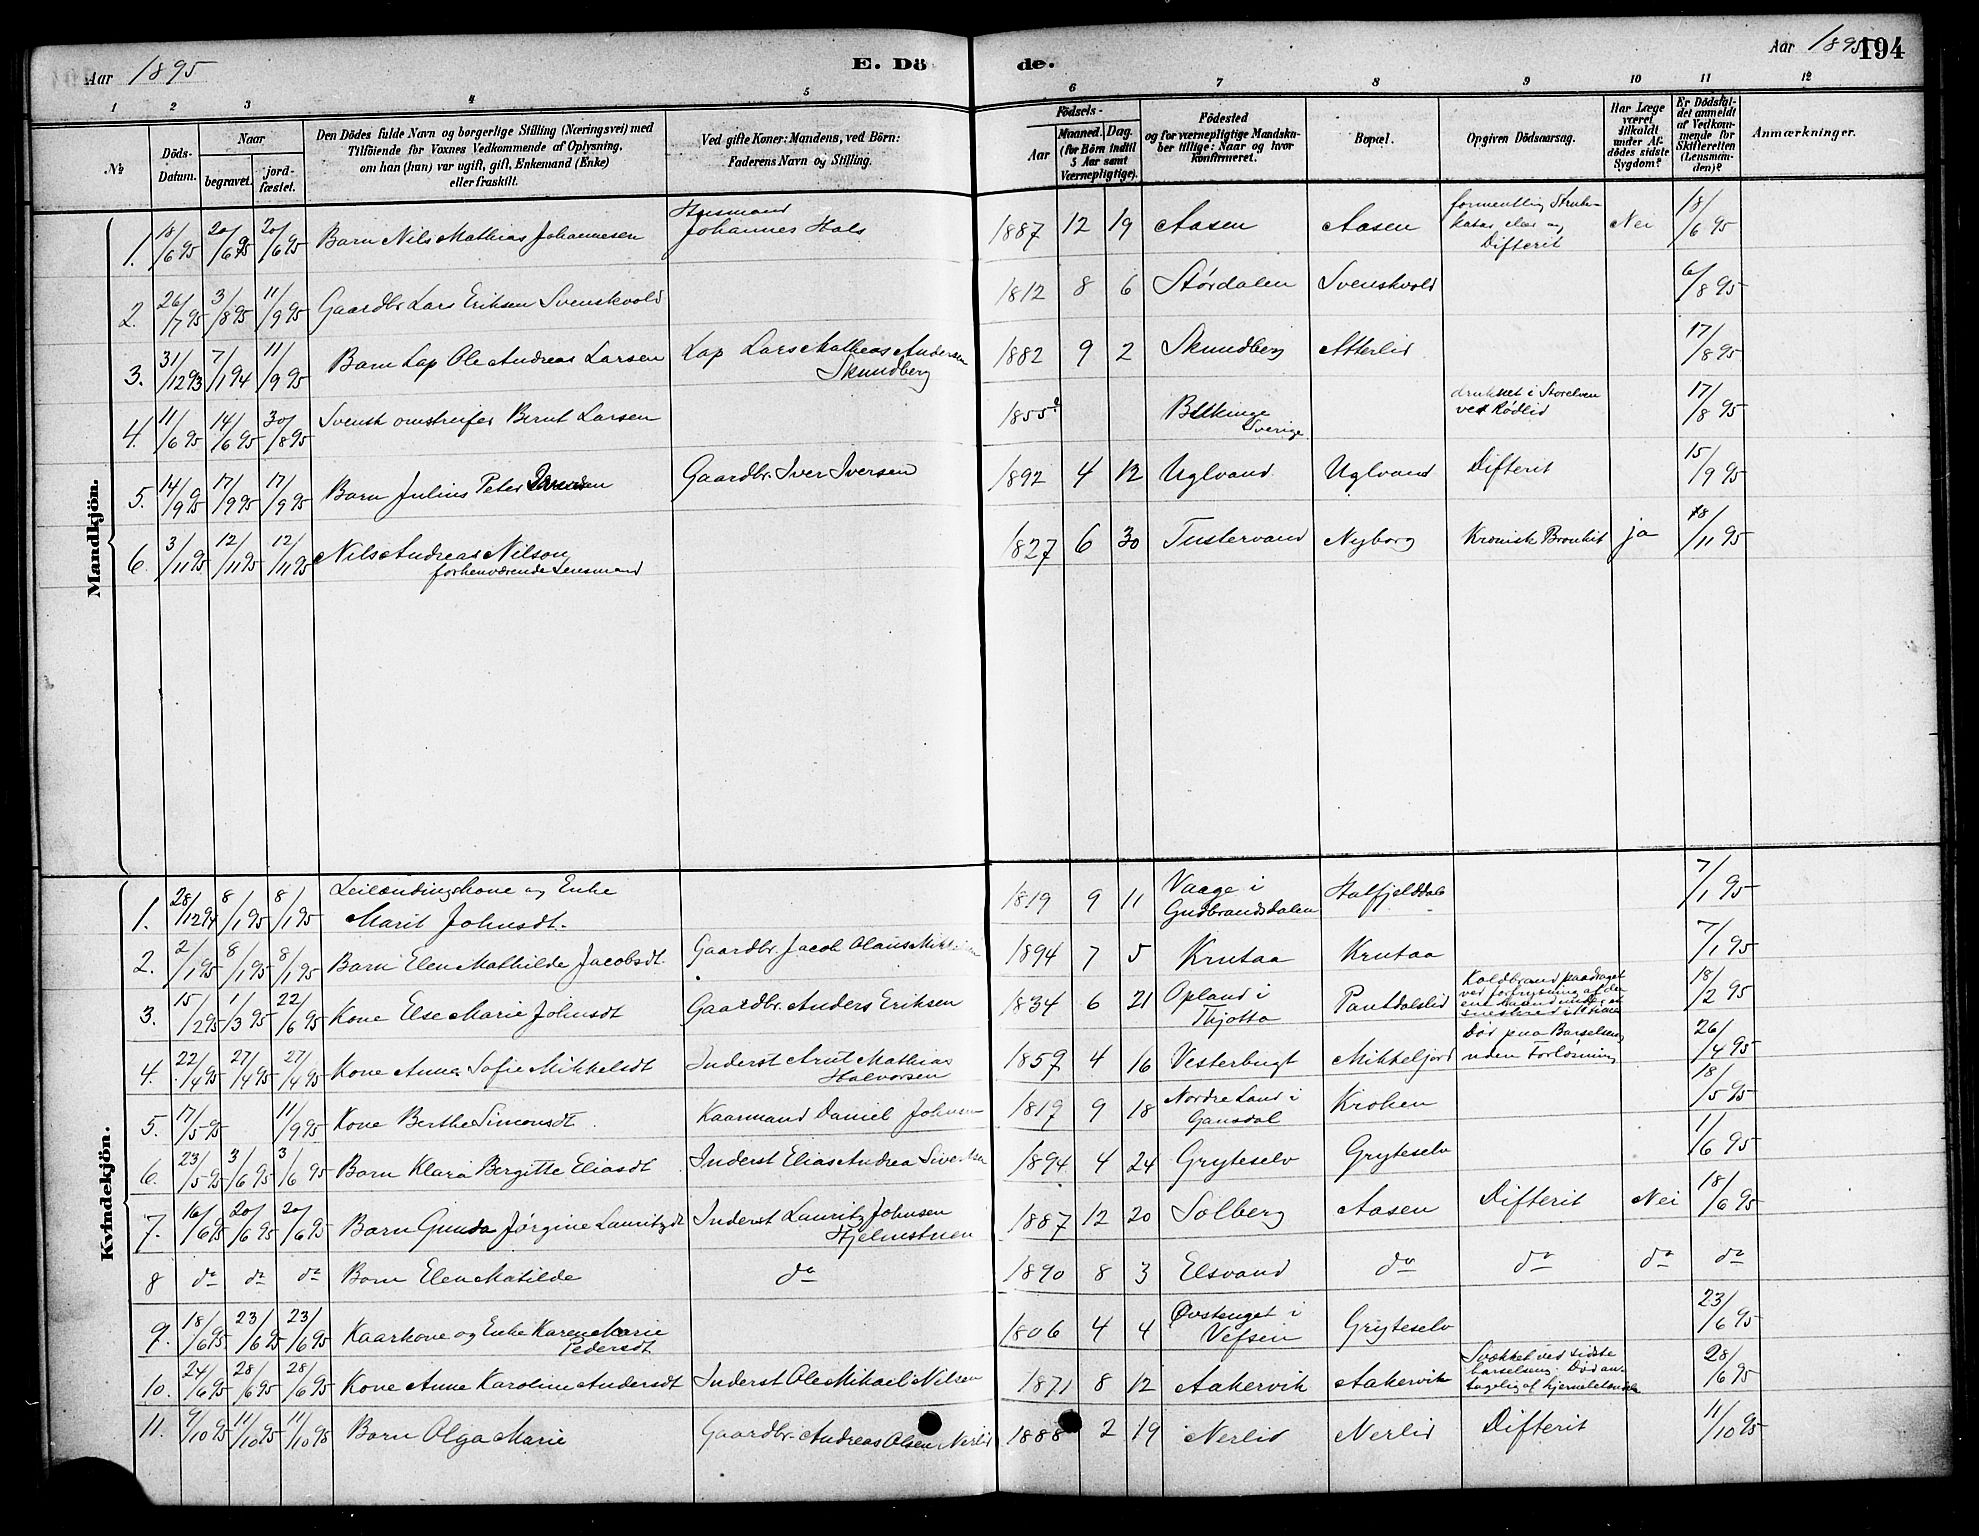 Aar 1895
E. Dö de.
Aar 1895
194
1 2 3 4 5 6 7 8 9 10 11 12
№
Döds-Datum.
Naar
begravet.
jord-fæstet.
Den Dödes fulde Navn og borgerlige Stilling (Næringsvei) med
Tilföiende for Voxnes Vedkommende af Oplysning,
om han (hun) var ugift, gift, Enkemand (Enke)
eller fraskilt.
Ved gifte Koner: Mandens, ved Börn:
Faderens Navn og Stilling.
Födsels-
Aar
Maaned. Dag.
(for Börn indtil
5 Aar samt
Værnepligtige).
Födested
og for værnepligtige Mandska-
ber tillige: Naar og hvor
Konfirmeret.
Bopæl.
Opgiven Dödsaarsag.
Har Læge
været
tilkaldt
under Af-
dödes sidste
Sygdom?
Er Dödsfal-
det anmeldt
af Vedkom-
mende for
Skifteretten
(Lensman-
den)?
Anmærkninger.
Mandkjön.
1. 18/6 95 20/6 95 20/6 95 Barn Nils Mathias Johannesen Husmand Johannes Hals 1887 12 19 Aasen Aasen formentlig Strube-
katar eller og
Difterit Nei 18/6 95
2. 26/7 95 3/8 95 11/9 95 Gaardbr. Lars Eriksen Svenskvold 1812 8 6 Stórdalen Svenskvold 6/8 95
3. 31/12 93 7/1 94 11/9 95 Barn Lap Ole Andreas Larsen Lap Lars Matheas Andersen
Skundberg 1882 9 2 Skundberg Atterlid 17/8 95
4. 11/6 95 14/6 95 30/8 95 Svensk omstreifer Bernt Larsen 1855? Blekinge
Sverige druknet i Storelven
ved Rödlid 17/8 95
5. 14/9 95 17/9 95 17/9 95 Barn Julius Peter Iversen Gaardbr. Iver Iversen 1892 4 12 Uglvand Uglvand Difterit 15/9 95
6. 3/11 95 12/11 95 12/11 95 Nils Andreas Nilson
forhenværende Lensmand 1827 6 30 Tustervand Nyborg Kronisk Bronkit ja 18/11 95
Kvindekjön.
1. 28/12 94 8/1 95 8/1 95 Leilændingskone og Enke
Marit Johnsdt. 1819 9 11 Vaage i
Gudbrandsdalen Hatfjelddal 7/1 95
2. 2/1 95 8/1 95 8/1 95 Barn Elen Mathilde Jacobsdt. Gaardbr. Jacob Olaus 1894 7 5 Krutaa Krutaa 7/1 95
3. 15/2 95 1/3 95 22/6 95 Kone Else Marie Johnsdt Gaardbr. Anders Eriksen 1834 6 21 Opland i
Thjotta Pantdalslid Koldbrand paadraget
ved forfrysning af den
ene 18/2 95
4. 22/4 95 27/4 95 27/4 95 Kone Anne Sofie Mikkelsdt Inderst Arnt Mathias
Halvorsen 1859 4 16 Vesterbugt Mikkeljord Död paa Barselseng
uden Forlösning 26/4 95
5. 17/5 95 11/9 95 Kone Berthe Simonsdt Kaarmand Daniel Johnsen 1819 9 18 Nordre Land i
Gausdal Krohen 18/5 95
6. 23/5 95 3/6 95 3/6 95 Barn Klara Bergitte Eliasdt Inderst Elias Andrea Sivertsen 1894 4 24 Gryteselv Gryteselv 1/6 95
7. 16/6 95 20/6 95 20/6 95 Barn Gunda Jörgine Lauritzdt Inderst Lauritz Johnsen
Hjelmstuen 1887 12 20 Solberg Aasen Difterit Nei 18/6 95
8 do do do Barn Elen Matilde do 1890 8 3 Elsvand do do do do
9. 18/6 95 23/6 95 23/6 95 Kaarkone og Enke Karen Marie
Pedersdt 1806 4 4 Övstenget i
Vefsen Gryteselv 23/6 95
10. 24/6 95 28/6 95 28/6 95 Kone Anne Karoline Andersdt Inderst Ole Mikael Nilsen 1871 8 12 Aakervik Aakervik Svækket ved sidste
barselseng. Död an-
tagelig af hjernebetændelse 28/6 95
11. 9/10 95 11/10 95 11/10 95 Barn Olga Marie Gaardbr. Andreas Olsen Nerlid 1888 2 19 Nerlid Nerlid Difterit 11/10 95